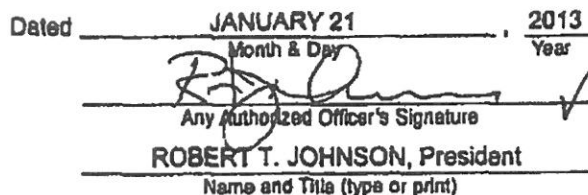 Dated JANUARY 21, 2013
Month & Day Year
Any Authorized Officer's Signature
ROBERT T. JOHNSON, President
Name and Title (type or print)